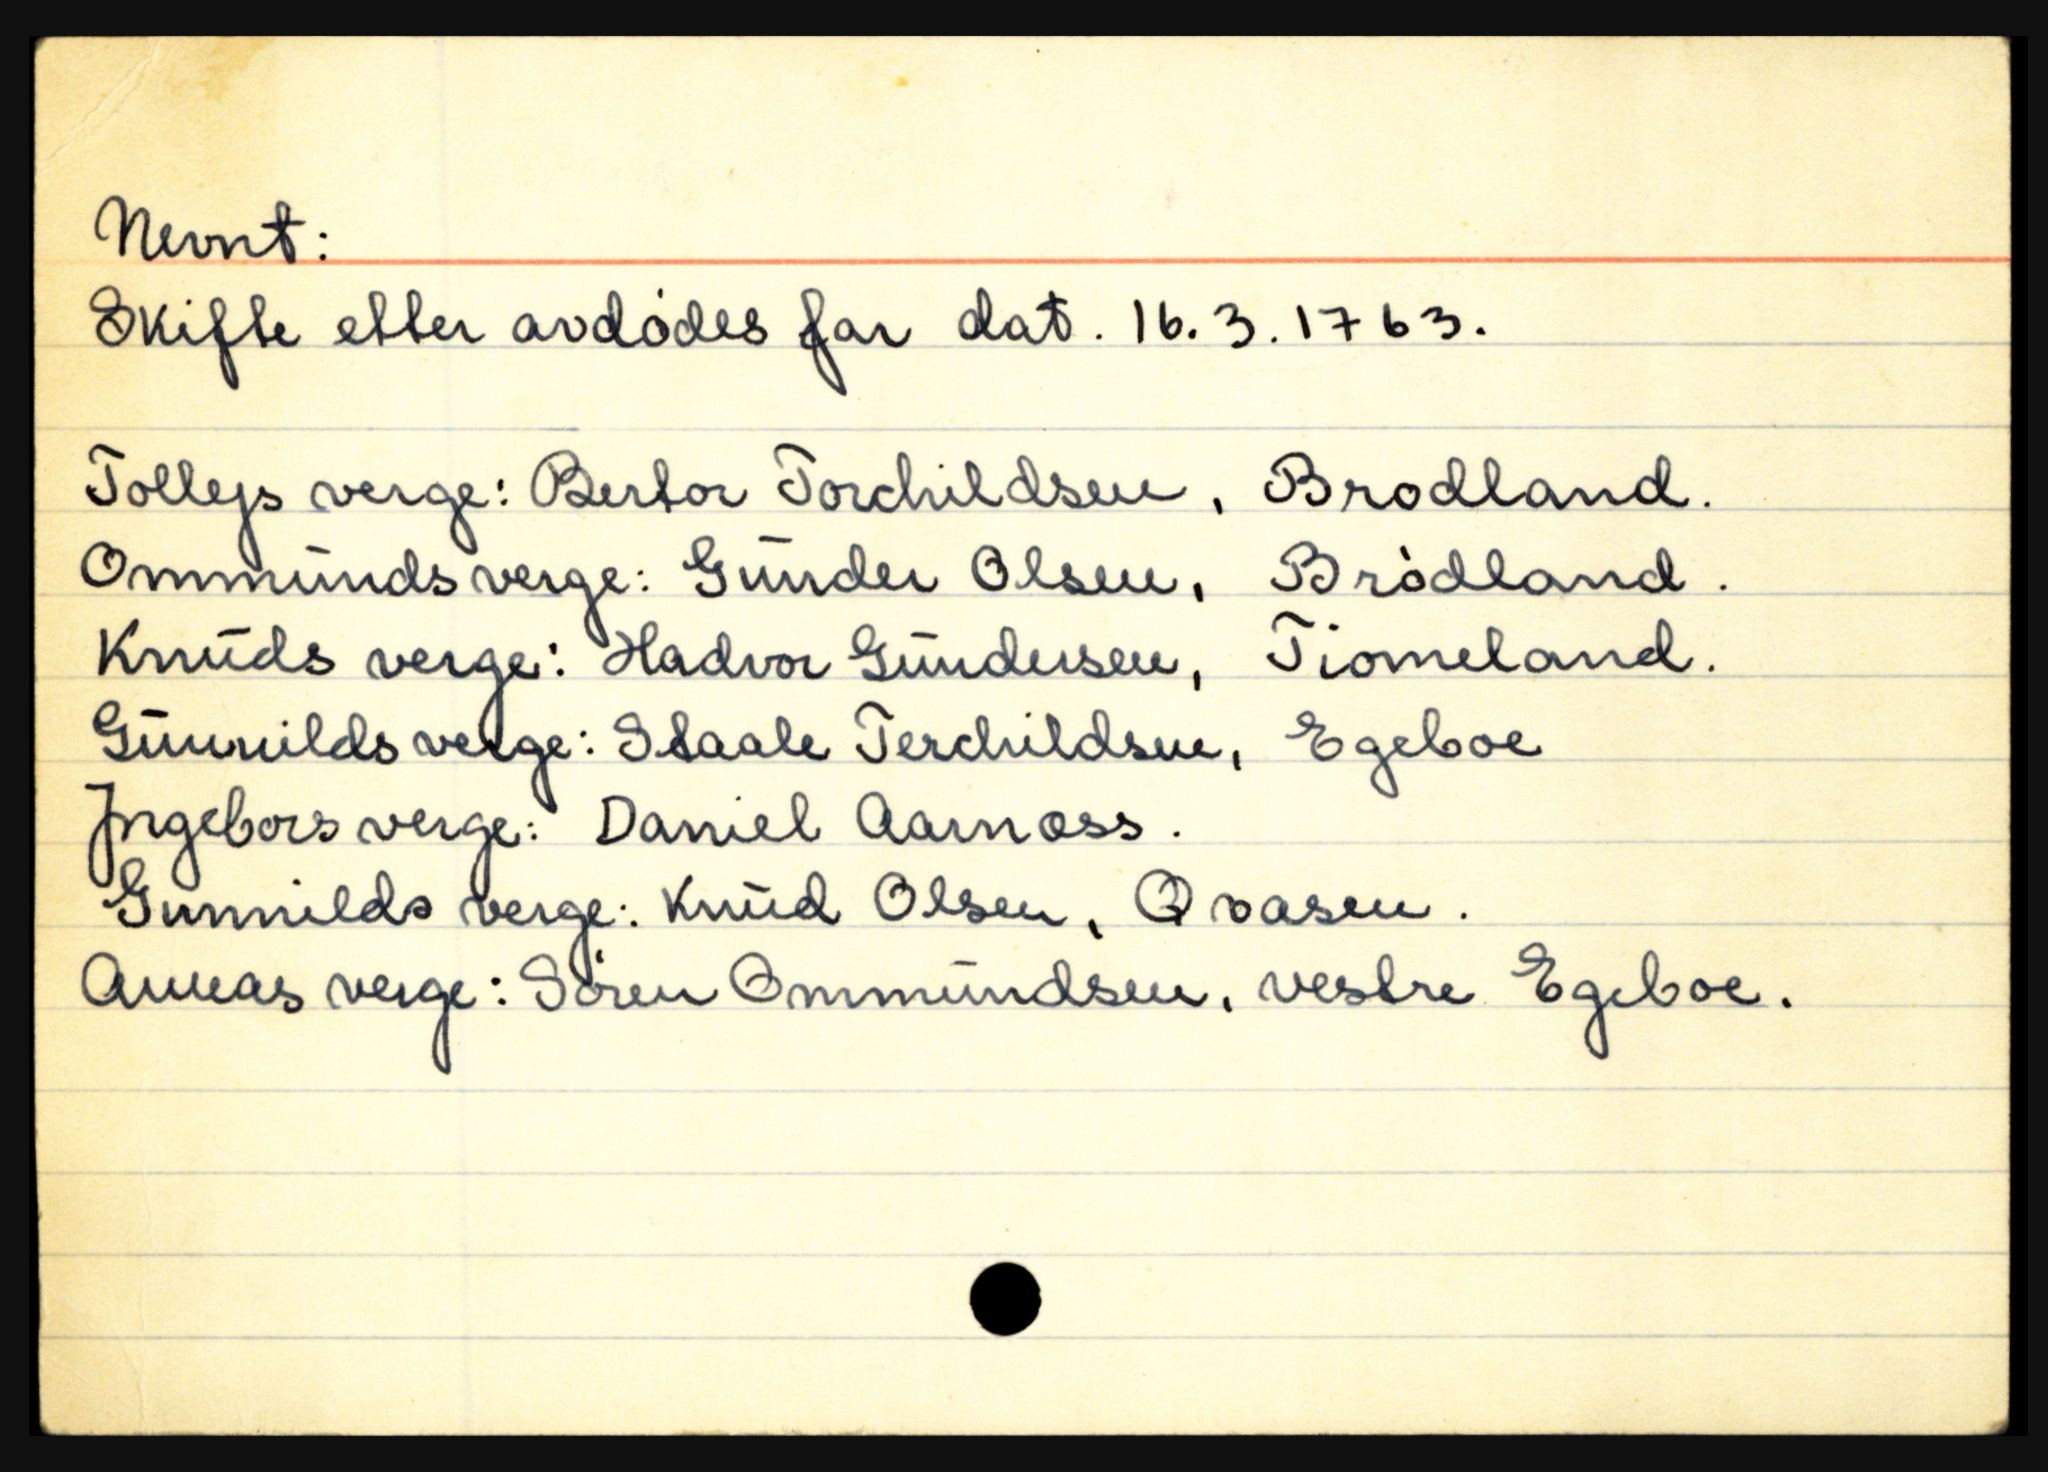 Nevnt:
Skifte etter avdødes far dat. 16.3.1763.
Tollejs verge: Bertor Torchildsen, Brodland.
Ommunds verge: Gunder Olsen, Brødland.
Knuds verge: Hadvor Gundersen, Tiomeland.
Gunnilds verge: Staale Terchildsen, Egeboe
Ingebors verge: Daniel Aarnæss.
Gunnilds verge: Knud Olsen, Qvasen.
Annas verge: Søren Ommundsen, vestre Egeboe.